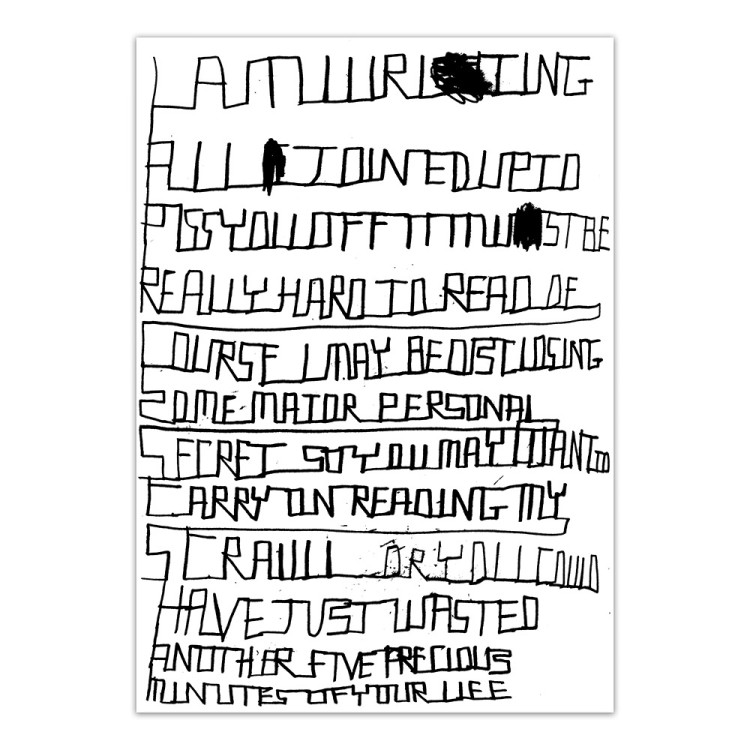 I AM WRITING
ALL JOINED UP TO
PISS YOU OFF IT MUST BE
REALLY HARD TO READ OF
COURSE I MAY BE DISCLOSING
SOME MAJOR PERSONAL
SECRET SO YOU MAY WANT TO
CARRY ON READING MY
SCRAWL OR YOU COULD
HAVE JUST WASTED
ANOTHER FIVE PRECIOUS
MINUTES OF YOUR LIFE